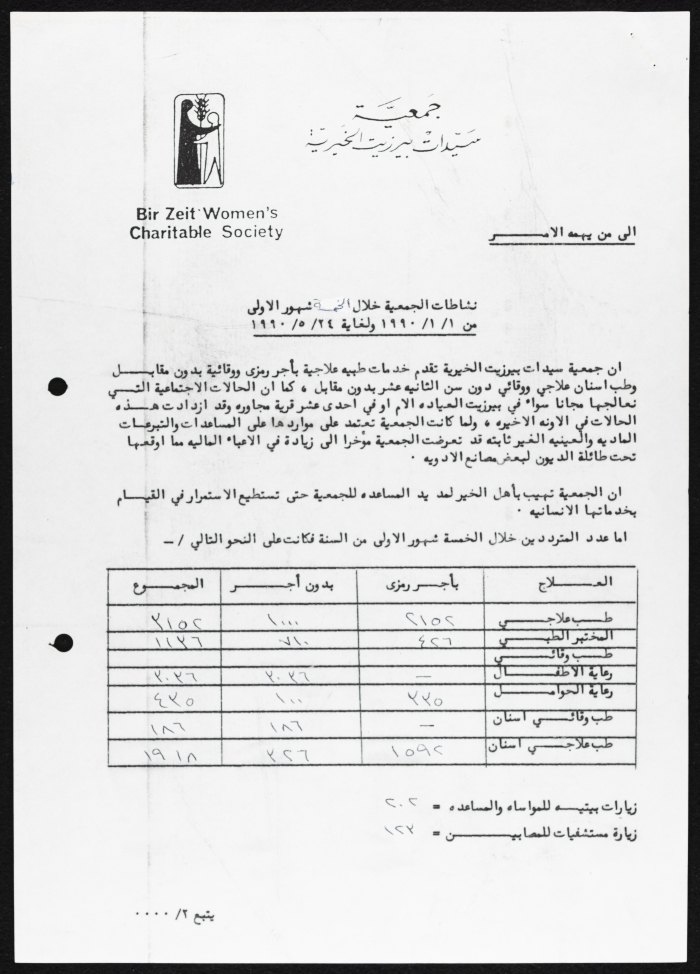 جمعية
سيدات بيرزيت الخيرية
Bir Zeit Women's
Charitable Society
الى من يهمه الامـــر
نشاطات الجمعية خلال الخمسة شهور الاولى
من ١/١/ ١٩٩٠ ولغاية ٢٤/ ٥/ ١٩٩٠
ان جمعية سيدات بيرزيت الخيرية تقدم خدمات طبيه علاجية بأجر رمزى ووقائية بدون مقابـــل
وطب اسنان علاجي ووقائي دون سن الثانيه عشر بدون مقابل ، كما ان الحالات الاجتماعية التـــي
نعالجها مجانا سواء في بيرزيت العياده الام او في احدى عشر قرية مجاوره وقد ازدادت هـــذه
الحالات في الاونه الاخيره ، ولما كانت الجمعية تعتمد على مواردها على المساعدات والتبرعـات
الماديه والعينيه الغير ثابته قد تعرضت الجمعية مؤخرا الى زيادة في الاعباء الماليه مما اوقعها
تحت طائلة الديون لبعض مصانع الادويه ٠
ان الجمعية تهيب بأهل الخير لمد يد المساعده للجمعية حتى تستطيع الاستمرار في القيـــام
بخدماتها الانسانيه ٠
اما عدد المترددين خلال الخمسة شهور الاولى من السنة فكانت على النحو التالي /ــ
العـــلاج بأجـر رمزى بدون أجـــر المجمـــوع
طـــب علاجـــي ٢١٥٢ ١٠٠٠ ٣١٥٢
المختبر الطبـــي ٤٢٦ ٧١٠ ١١٣٦
طـــب وقائـــي
رعاية الاطفـــال — ٢٠٣٦ ٢٠٣٦
رعاية الحوامـــل ٣٣٥ ١٠٠ ٤٣٥
طب وقائـــي اسنان — ١٨٦ ١٨٦
طب علاجـــي اسنان ١٥٩٢ ٣٢٦ ١٩١٨
زيارات بيتيـــه للمواساه والمساعده = ٢٠٢
زيارة مستشفيات للمصابيـــن = ١٢٣
يتبع ٢/ ٠٠٠٠